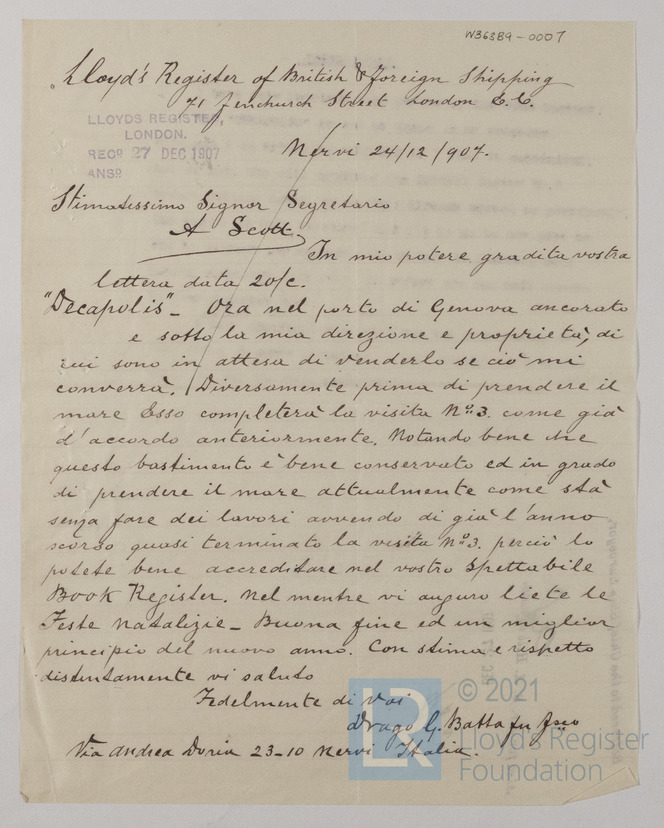 W363B9-0007
Lloyd's Register of British & Foreign Shipping
71 Fenchurch Street London E.C.
LLOYDS REGISTER,
LONDON.
RECD 27 DEC 1907
ANSD
Nervi 24/12/907.
Stimatissimo Signor Segretario
A Scott
In mio potere gradita vostra
lettera data 20/c.
"Decapolis"_ Ora nel porto di Genova ancorato
e sotto la mia direzione e proprietà, di
cui sono in attesa di venderlo se ciò mi
converrà. Diversamente prima di prendere il
mare Esso completerà la visita No. 3. come già
d'accordo anteriormente. Notando bene che
questo bastimento è bene conservato ed in grado
di prendere il mare attualmente come stà
senza fare dei lavori avvendo di già l'anno
scorso quasi terminato la visita No. 3. perciò lo
potete bene accreditare nel vostro Spettabile
Book Register. Nel mentre vi auguro liete le
Feste Natalizie_ Buona fine ed un miglior
principio del nuovo anno. Con stima e rispetto
distintamente vi saluto
Fedelmente di Voi
Drago G. Batta fu Fsco
Via Andrea Doria 23_10 Nervi Italia.
LR © 2021
Lloyd's Register
Foundation